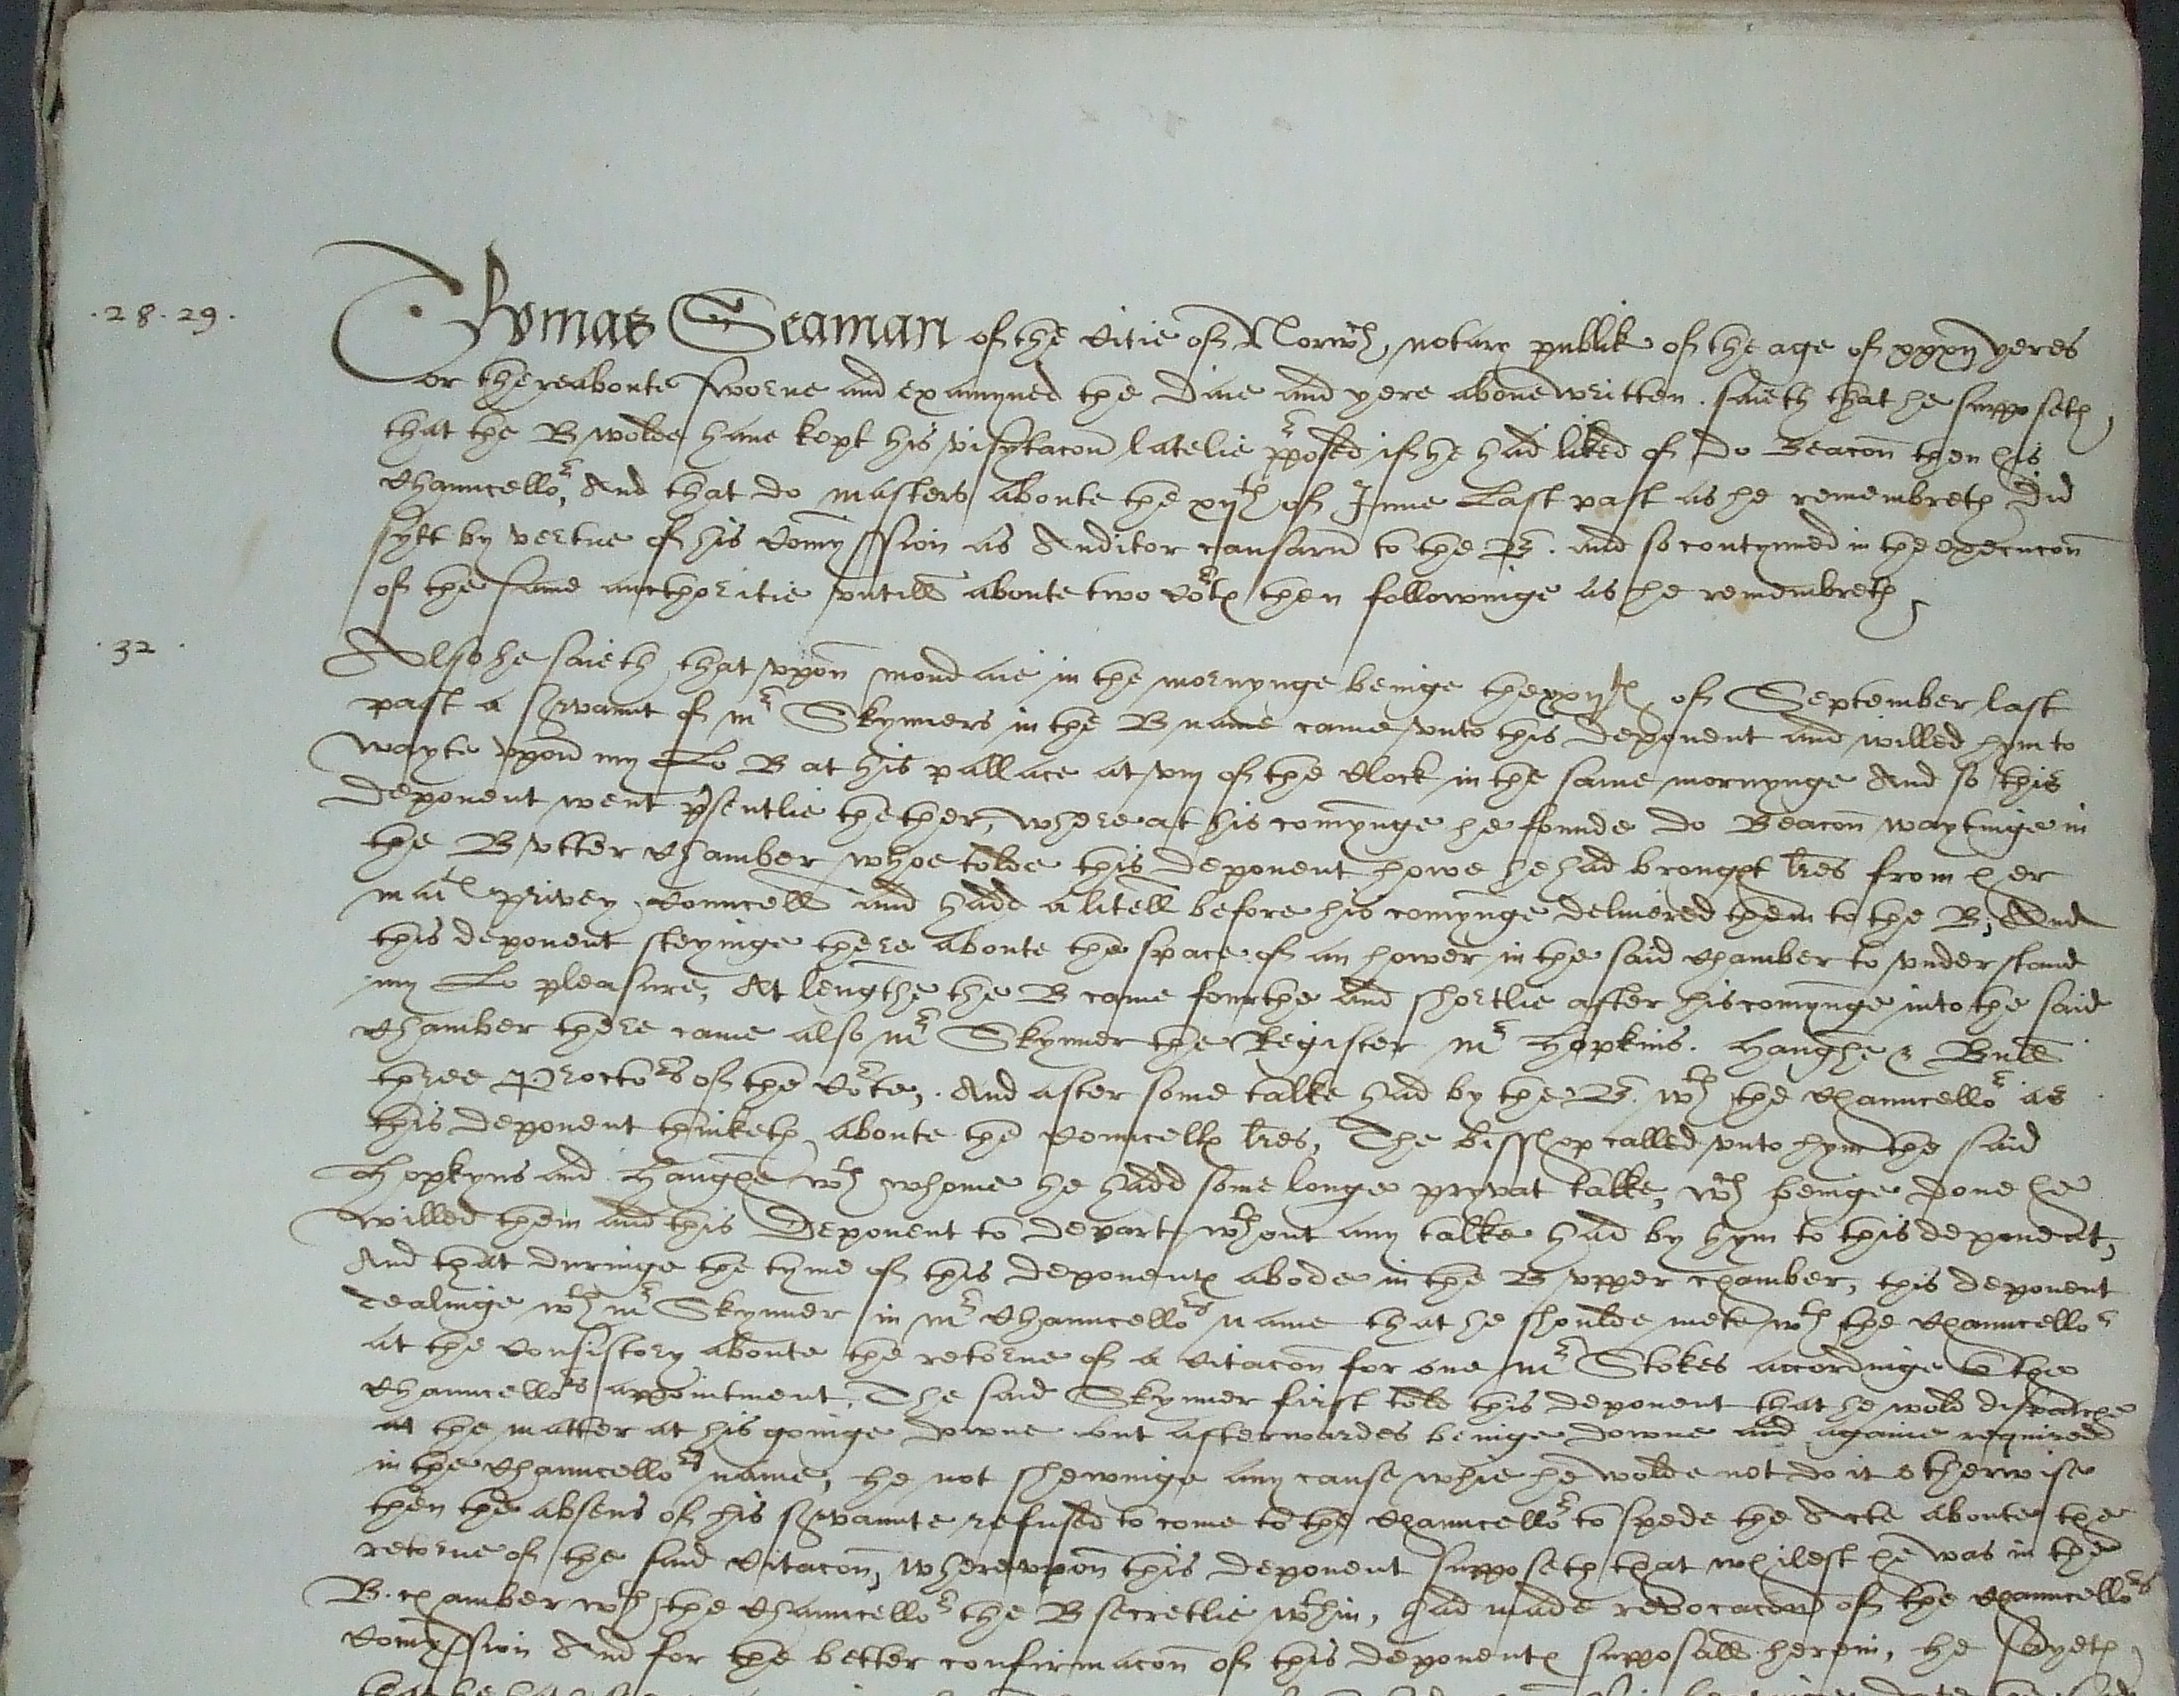 .28.29.
Thomas Seaman of the Citie of Norwch, notary publik of the age of xxxij yeres
or thereaboute sworne and examyned the daie and yere abovewritten. saieth that he supposeth,
that the B wolde have kept his visytacon latelie pposed if he had liked of Do Beacon then his
Chauncellor, And that do masters aboute the xijth of June Last past as he remembreth did
sytt by vertue of his Comyssion as Auditor causarū to the B. and so contynued in the execucon
of the same aucthoritie untill aboute two Corts then followinge as he remembreth,
.32.
Also he saieth that upon mondaie in the mornynge beinge the xxijth of September last
past a servaunt of mr Skynners in the B name came unto this deponent and willed hym to
wayte upon my Lo B at his pallace at viij of the Clock in the same mornynge And so this
deponent went psentlie thether, where at his comynge he founde Do Beacon waytinge in
the B utter Chamber whoe tolde this deponent howe he had brought lres from her
matis privey Councell and hadd a litell before his comynge delivered them to the B, And
this deponent steyinge there aboute the space of an hower in the said Chamber to understand
my Lo pleasure, At lengthe the B came fourthe and shortlie after his comynge into the said
Chamber there came also Mr Skynner the Register Mr Hopkins. Haughe & Bull
three Proctors of the Corte, And after some talke had by the B. wth the Chauncellor as
this deponent thinketh aboute the Councells lres, The bisshop called unto hym the said
Hopkyns and Haughe wth whome he hadd some longe pryvat talke, wch beinge done he
willed them and this Deponent to depart wthout any talke had by hym to this deponent,
And that duringe the tyme of this deponents abode in the B upper chamber, this deponent
dealinge wth mr Skynner in mr Chauncellors name that he shoulde mete wth the Chauncellor
at the Consistory aboute the retorne of a Citacon for one mr Stokes accordinge to the
Chauncellors appointment, The said Skynner first told this deponent that he wold dispatche
at the matter at his goinge downe but afterwardes beinge downe and againe required
in the Chauncellors name, he not shewinge any cause whie he wolde not do it otherwise
then the absens of his servaunte refused to come to the Chauncellor to spede the Acte aboute the
retorne of the said Citacon, whereupon this deponent supposeth that whilest he was in the
B. chamber wth the Chauncellor the B secretlie wthin, had made revocacon of the Chauncellors
Comyssion And for the better confirmacon of this deponents supposall herein, he sayeth,